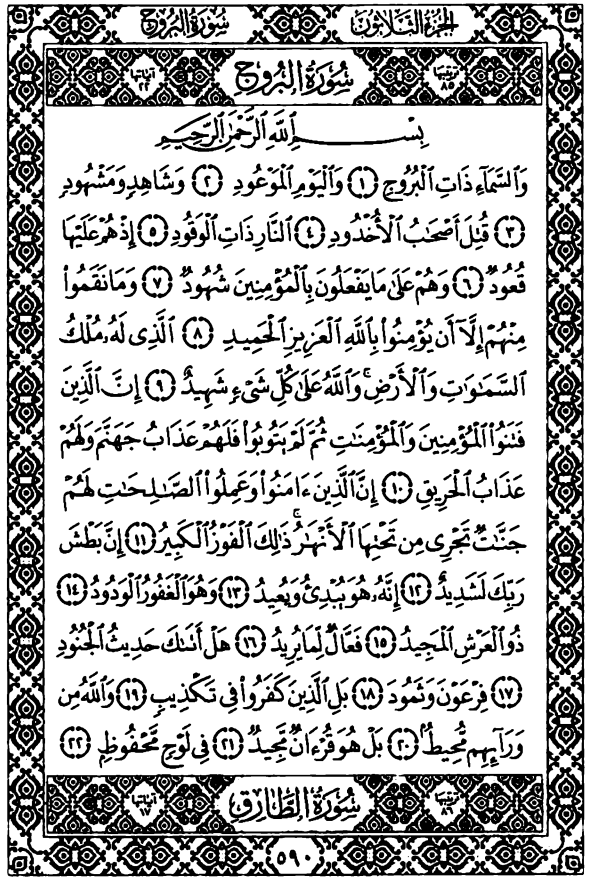 الجزء الثلاثون
سورة البروج
ترتيبها ٨٥
سُورَةُ الْبُرُوجِ
آياتها ٢٢
بِسْمِ اللَّهِ الرَّحْمَٰنِ الرَّحِيمِ
وَالسَّمَآءِ ذَاتِ الْبُرُوجِ ١ وَالْيَوْمِ الْمَوْعُودِ ٢ وَشَاهِدٍ وَمَشْهُودٍ
٣ قُتِلَ أَصْحَابُ الْأُخْدُودِ ٤ النَّارِ ذَاتِ الْوَقُودِ ٥ إِذْ هُمْ عَلَيْهَا
قُعُودٌ ٦ وَهُمْ عَلَىٰ مَا يَفْعَلُونَ بِالْمُؤْمِنِينَ شُهُودٌ ٧ وَمَا نَقَمُوا۟
مِنْهُمْ إِلَّآ أَن يُؤْمِنُوا۟ بِاللَّهِ الْعَزِيزِ الْحَمِيدِ ٨ الَّذِى لَهُۥ مُلْكُ
السَّمَٰوَٰتِ وَالْأَرْضِ ۚ وَاللَّهُ عَلَىٰ كُلِّ شَىْءٍ شَهِيدٌ ٩ إِنَّ الَّذِينَ
فَتَنُوا۟ الْمُؤْمِنِينَ وَالْمُؤْمِنَٰتِ ثُمَّ لَمْ يَتُوبُوا۟ فَلَهُمْ عَذَابُ جَهَنَّمَ وَلَهُمْ
عَذَابُ الْحَرِيقِ ١٠ إِنَّ الَّذِينَ ءَامَنُوا۟ وَعَمِلُوا۟ الصَّٰلِحَٰتِ لَهُمْ
جَنَّٰتٌ تَجْرِى مِن تَحْتِهَا الْأَنْهَٰرُ ۚ ذَٰلِكَ الْفَوْزُ الْكَبِيرُ ١١ إِنَّ بَطْشَ
رَبِّكَ لَشَدِيدٌ ١٢ إِنَّهُۥ هُوَ يُبْدِئُ وَيُعِيدُ ١٣ وَهُوَ الْغَفُورُ الْوَدُودُ ١٤
ذُو الْعَرْشِ الْمَجِيدُ ١٥ فَعَّالٌ لِّمَا يُرِيدُ ١٦ هَلْ أَتَىٰكَ حَدِيثُ الْجُنُودِ
١٧ فِرْعَوْنَ وَثَمُودَ ١٨ بَلِ الَّذِينَ كَفَرُوا۟ فِى تَكْذِيبٍ ١٩ وَاللَّهُ مِن
وَرَآئِهِم مُّحِيطٌ ٢٠ بَلْ هُوَ قُرْءَانٌ مَّجِيدٌ ٢١ فِى لَوْحٍ مَّحْفُوظٍ ٢٢
ترتيبها ٨٦
سُورَةُ الطَّارِقِ
آياتها ١٧
٥٩٠